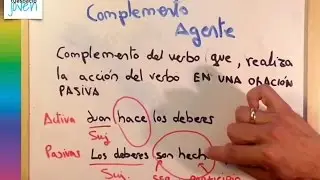 joven
Complemento
Agente
Complemento del verbo que, realiza
la acción del verbo EN UNA ORACIÓN
PASIVA
Activa Juan hace los deberes
Suj
Pasiva: Los deberes son hech
Suj.